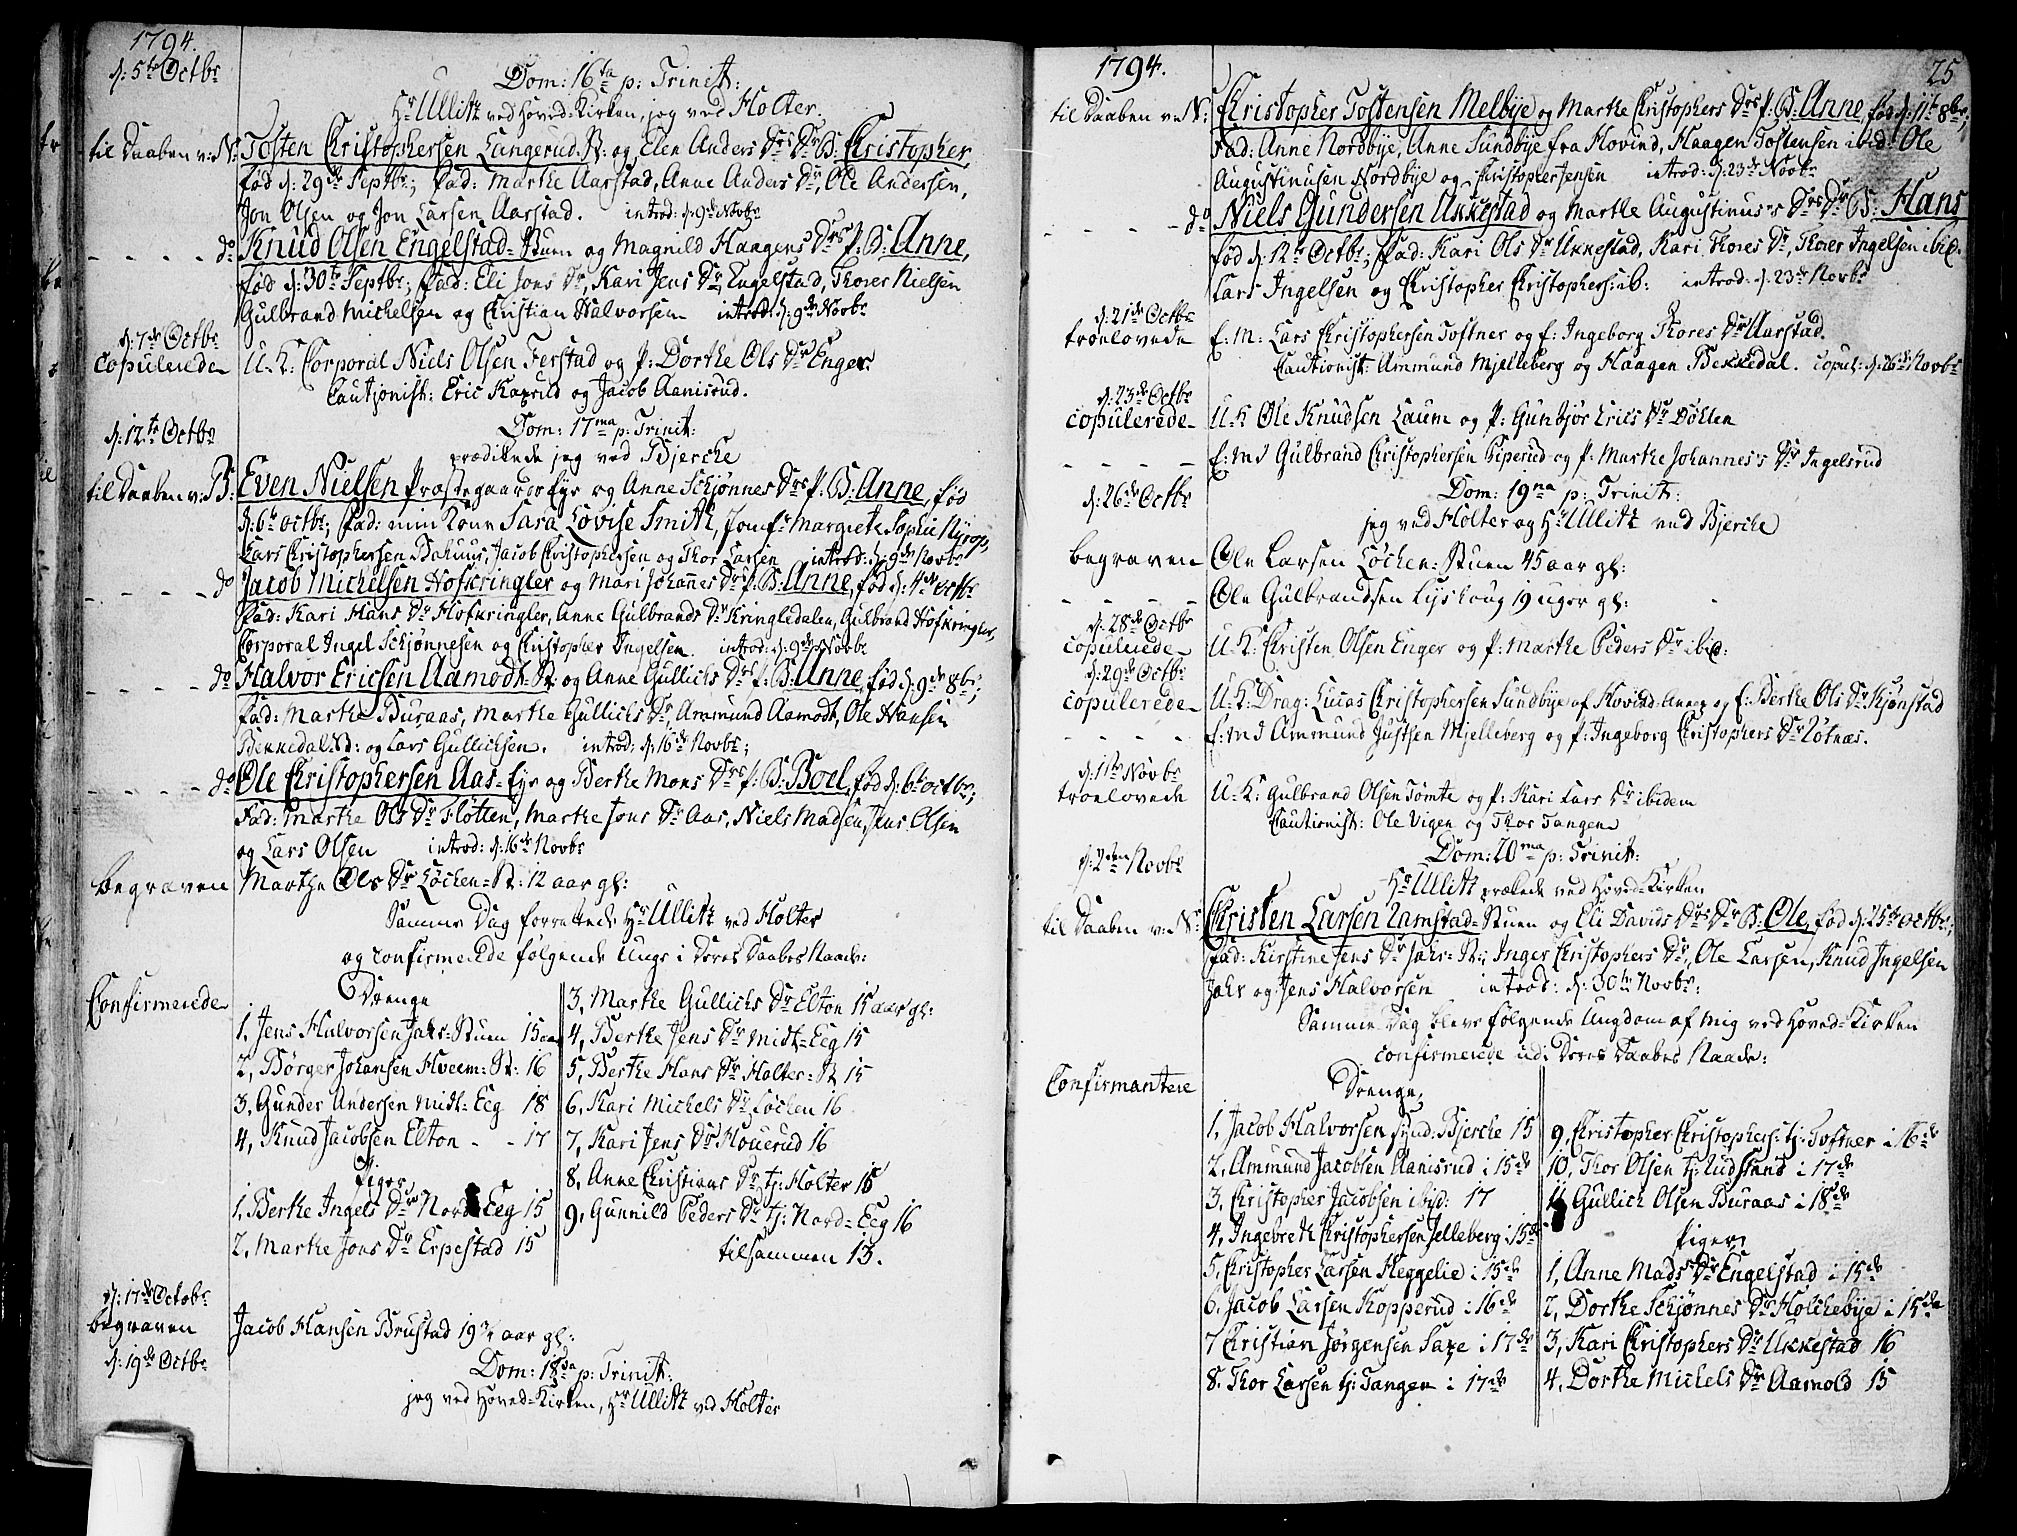 1794.
d: 5te Octbr
Dom: 16ta p: Trinit:
Hr Ullitz ved Hoved-Kirken, jeg ved Holter.
til Daaben v: N: Tosten Christophersen Langerud-St: og Elen Anders Drs Dr B: Christopher,
fød d: 29de Septbr; fad: Marthe Aarstad, Anne Anders Dr, Ole Andersen,
Jon Olsen og Jon Larsen Aarstad. introd: d: 9de Novbr
do Knud Olsen Engelstad-Stuen og Magnild Haagens Drs P: B: Anne,
fød d: 30te Septbr; fad: Eli Jons Dr, Kari Jens Dr Engelstad, Thorer Nielsen
Gulbrand Michelsen og Christian Halvorsen introd: d: 9de Novbr
d: 7de Octbr
Copulerede U: K: Corporal Niels Olsen Ferstad og P: Dorthe Ols Dr Enger.
Cautionist: Eric Kaxrud og Jacob Aanisrud.
d: 12te Octbr
Dom: 17ma p: Trinit:
prædikede jeg ved Bjerche
til Daaben v: B: Even Nielsen Præstegaards Eye og Anne Schjønnes Drs P: B: Anne, fød
d: 6te octbr; fad: min Kone Sara Lovise Smith, Jomfr Margrete Sophie Nyrop,
Lars Christophersen Bahuus, Jacob Christophersen og Thor Larsen introd: d: 9de Novbr
do Jacob Michelsen Hofkringler og Mari Johannes Drs P: B: Anne, fød d: 4de octbr
fad: Kari Hans Dr Hofkringler, Anne Gulbrands Dr Kringledalen, Gulbrand Hofkringler,
Corporal Ingel Schjønnesen og Christopher Ingelsen. introd: d: 9de Novbr
do Halvor Ericsen Aamodt-St og Anne Gullichs Drs P: B: Anne, fød d: 9de 8br;
fad: Marthe Buraas, Marthe Gullichs Dr, Ammund Aamodt, Ole Hansen
Bekkedal-St: og Lars Gullichsen. introd: d: 16de Novbr;
do Ole Christophersen Aas-Eye og Berthe Mons Drs P: B: Boel, fød d: 6te octbr;
fad: Marthe Ols Dr Fløtten, Marthe Jons Dr Aas, Niels Madsen, Jens Olsen
og Lars Olsen introd: d: 16de Novbr
begraven Marthe Ols Dr Løchen-St: 12 aar gl:
Samme Dag forrettede Hr Ullitz ved Holter
og confirmerede følgende Unge i Deres Daabes Naade:
Confirmerede Drenge
1, Jens Halvorsen Jahr-Stuen 15 aar
2, Børger Johansen Hveem-St: 16
3, Gunder Andersen Midt-Eeg 18
4, Knud Jacobsen Elton - - 17
Piger
1, Berthe Ingels Dr Nord Eeg 15
2, Marthe Jons Dr Erpestad 15
3, Marthe Gullichs Dr Elton 15 aar gl:
4, Berthe Jens Dr Midt-Eeg 15
5, Berthe Hans Dr Holter-St 15
6, Kari Michels Dr Løchen 16
7, Kari Jens Dr Houerud 16
8, Anne Christians Dr tj: Holter 16
9, Gunnild Peders Dr tj: Nord-Eeg 16
tilsammen 13.
d: 17de Octobr
begraven Jacob Hansen Brustad 19¾ aar gl:
d: 19de Octbr
Dom: 18da p: Trinit:
jeg ved Hoved-Kirken, Hr Ullitz ved Holter
1794.
25
til Daaben v: N: Christopher Tostensen Melbye og Marthe Christophers Drs P: B: Anne, fød d: 11te 8br;
fad: Anne Nordbye, Anne Sundbye fra Hovind, Haagen Tostensen ibid: Ole
Augustinusen Nordbye og Christopher Jensen introd: d: 23de Novbr
do Niels Gundersen Ukkestad og Marthe Augustinus's Drs Dr B: Hans
fød d: 12te Octbr; fad: Kari Ols Dr Ukkestad, Kari Thores Dr, Thorer Ingelsen ibid:
Lars Ingelsen og Christopher Christophers: ib: introd: d: 23de Novbr
d: 21de Octbr
troelovede E: M: Lars Christophersen Toftner og E: Ingeborg Thores Dr Aarstad.
Cautionist: Ammund Mjelleberg og Haagen Bekkedal. copul: d: 26de Novbr
d: 23de Octbr
copulerede U: K Ole Knudsen Laum og P: Gunbjør Erics Dr Dølen
E: M: Gulbrand Christophersen Piperud og P: Marthe Johannes's Dr Ingelsrud
d: 26de Octbr
Dom: 19na p: Trinit:
jeg ved Holter og Hr Ullitz ved Bjerche
begraven Ole Larsen Løchen-Stuen 45 aar gl:
Ole Gulbrandsen Lyshoug 19 uger gl:
d: 28de Octbr
copulerede U: K: Christen Olsen Enger og P: Marthe Peders Dr ibid:
d: 29de Octbr
copulerede U: K: Drag: Lucas Christophersen Sundbye af Hovind Annex og E: Berthe Ols Dr Kjønstad
E: M: Ammund Justsen Mjelleberg og P: Ingeborg Christophers Dr Løtnæs.
d: 1ste Novbr
troelovede U: K: Gulbrand Olsen Tømte og P: Kari Lars Dr ibidem
Cautionist: Ole Vigen og Thor Tangen
d: 2den Novbr
Dom: 20ma p: Trinit:
Hr Ullitz præked ved Hoved-Kirken
til Daaben v: N: Christen Larsen Ramstad-Stuen og Eli Davids Drs Dr B: Ole, fød d: 25te octbr;
fad: Kirstine Jens Dr Jahr-St:, Inger Christophers Dr, Ole Larsen, Knud Ingelsen
Jahr og Jens Halvorsen introd: d: 30te Novbr:
Samme Dag bleve følgende Ungdom af mig ved Hoved-Kirken
confirmerede udi Deres Daabes Naade:
Confirmantere Drenge
1, Jacob Halvorsen synd: Bjerche 15
2, Ammund Jacobsen Aanisrud i 15de
3, Christopher Jacobsen ibid: 17
4, Ingebreth Christophersen Jelleberg i 15de
5, Christopher Larsen Heggelie i 15de
6, Jacob Larsen Kopperud i 16de
7 Christian Jørgensen Saxe i 17de
8. Thor Larsen tj: Tangen i 17de
9, Christopher Christophers: tj: Toftner i 16de
10, Thor Olsen tj: Udstand i 17de
11 Gullich Olsen Buraas i 18de
Piger
1, Anne Mads Dr Engelstad i 15de
2, Dorthe Schjønnes Dr Holchebye i 15de
3, Kari Christophers Dr Ukkestad 16
4, Dorthe Michels Dr Aamold 15